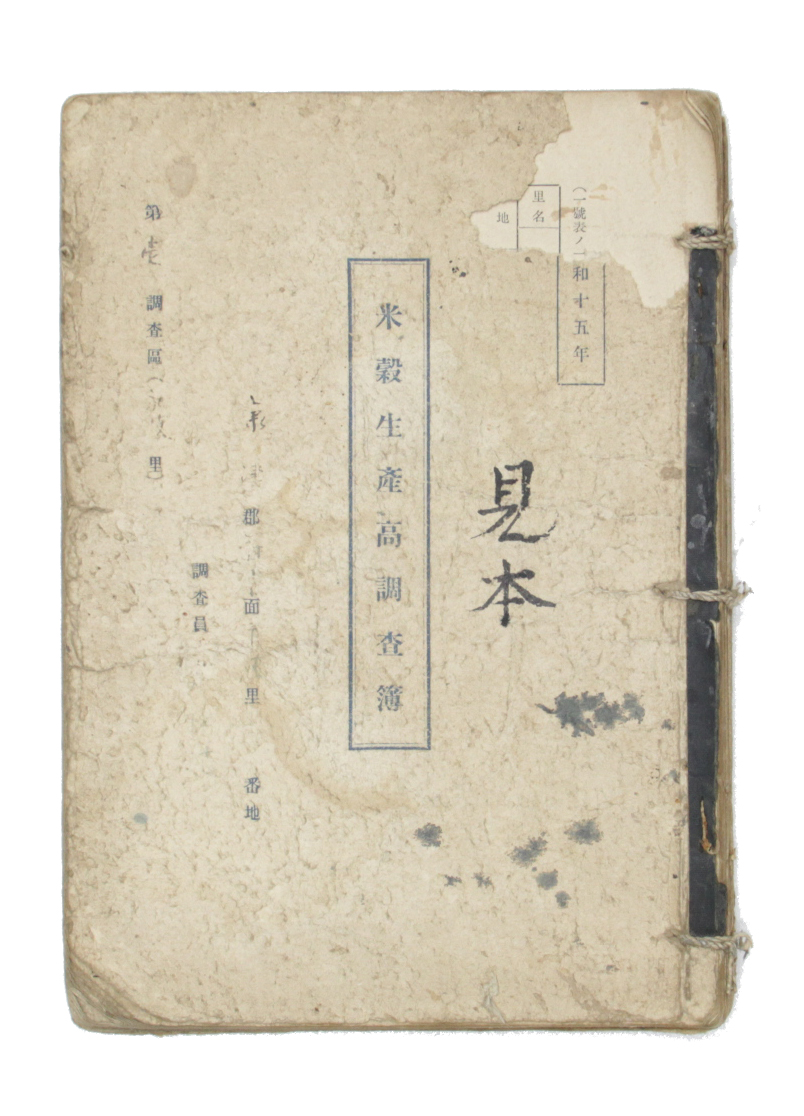 (一號表ノ一
里名
地
和十五年
見本
米穀生産高調査簿
郡 面 里 番地
調査員
第壱調査區( 里)